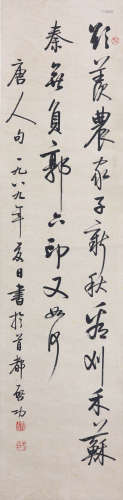 歆羡農家子新秋看刈禾蘇
秦無負郭六印又如何
唐人句一九八九年夏日書於首都启功